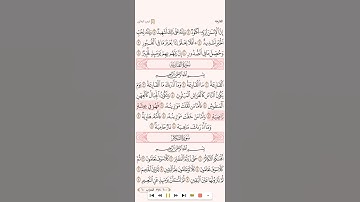 إِنَّ ٱلْإِنسَٰنَ لِرَبِّهِۦ لَكَنُودٌ ٦ وَإِنَّهُۥ عَلَىٰ ذَٰلِكَ لَشَهِيدٌ ٧ وَإِنَّهُۥ لِحُبِّ
ٱلْخَيْرِ لَشَدِيدٌ ٨ ۞ أَفَلَا يَعْلَمُ إِذَا بُعْثِرَ مَا فِى ٱلْقُبُورِ ٩
وَحُصِّلَ مَا فِى ٱلصُّدُورِ ١٠ إِنَّ رَبَّهُم بِهِمْ يَوْمَئِذٍ لَّخَبِيرٌۢ ١١
سُورَةُ القَارِعَةِ
بِسْمِ ٱللَّهِ ٱلرَّحْمَٰنِ ٱلرَّحِيمِ
ٱلْقَارِعَةُ ١ مَا ٱلْقَارِعَةُ ٢ وَمَآ أَدْرَىٰكَ مَا ٱلْقَارِعَةُ ٣ يَوْمَ
يَكُونُ ٱلنَّاسُ كَٱلْفَرَاشِ ٱلْمَبْثُوثِ ٤ وَتَكُونُ ٱلْجِبَالُ كَٱلْعِهْنِ
ٱلْمَنفُوشِ ٥ فَأَمَّا مَن ثَقُلَتْ مَوَٰزِينُهُۥ ٦ فَهُوَ فِى عِيشَةٍ
رَّاضِيَةٍ ٧ وَأَمَّا مَنْ خَفَّتْ مَوَٰزِينُهُۥ ٨ فَأُمُّهُۥ هَاوِيَةٌ ٩
وَمَآ أَدْرَىٰكَ مَا هِيَهْ ١٠ نَارٌ حَامِيَةٌۢ ١١
سُورَةُ التَّكَاثُرِ
بِسْمِ ٱللَّهِ ٱلرَّحْمَٰنِ ٱلرَّحِيمِ
أَلْهَىٰكُمُ ٱلتَّكَاثُرُ ١ حَتَّىٰ زُرْتُمُ ٱلْمَقَابِرَ ٢ كَلَّا سَوْفَ تَعْلَمُونَ ٣
ثُمَّ كَلَّا سَوْفَ تَعْلَمُونَ ٤ كَلَّا لَوْ تَعْلَمُونَ عِلْمَ ٱلْيَقِينِ ٥ لَتَرَوُنَّ ٱلْجَحِيمَ ٦
ثُمَّ لَتَرَوُنَّهَا عَيْنَ ٱلْيَقِينِ ٧ ثُمَّ لَتُسْـَٔلُنَّ يَوْمَئِذٍ عَنِ ٱلنَّعِيمِ ٨